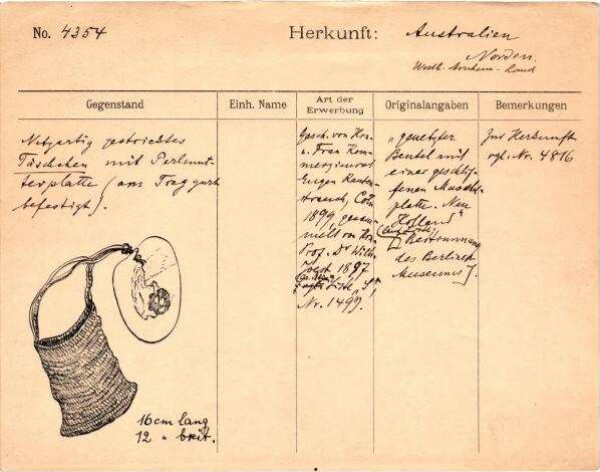 No. 4354
Herkunft:
Australien
Norden.
Westl. Arnhem-Land
Gegenstand
Einh. Name
Art der Erwerbung
Originalangaben
Bemerkungen
Netzartig gestricktes
Täschchen mit Perlmut-
terplatte (am Traggurt
befestigt).
Gesch. von Hrn.
u. Frau Kom-
merzienrat
Eugen Rauten-
strauch, Cöln
1899, gesam-
melt von Hrn.
Prof. Dr Wilh.
Joest 1897
Nr. 1499.
„genetzter
Beutel mit
einer geschlif-
fenen Muschel-
platte. Neu
Holland"
[Bestimmung
des Berliner
Museums].
Zur Herkunft
vgl. Nr. 4816
16 cm lang
12 " breit.